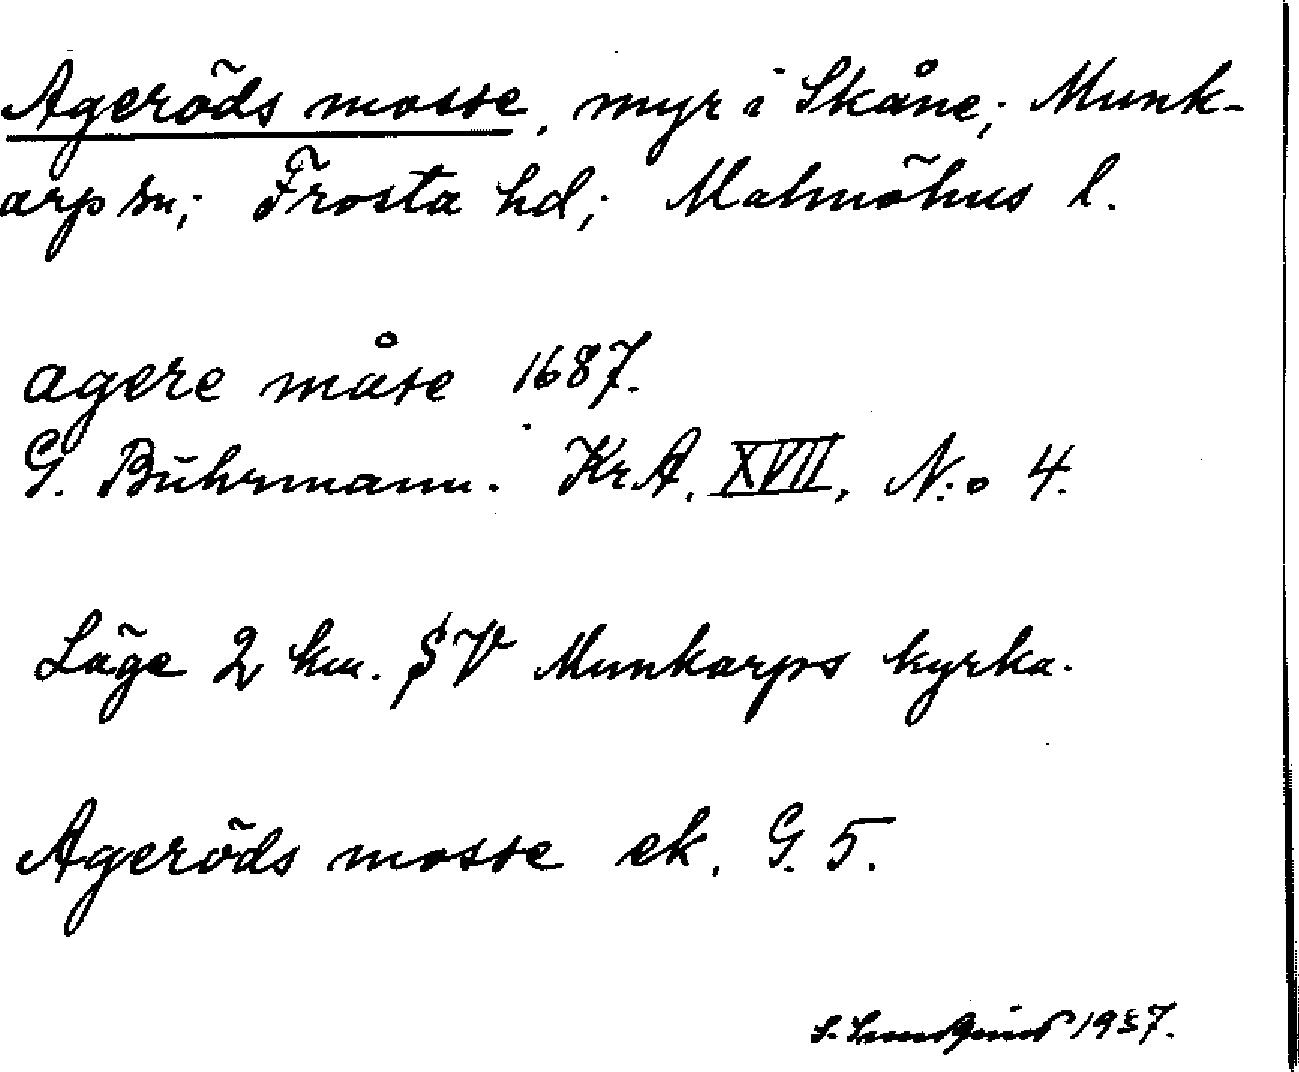 Ageröds mosse, myr i Skåne; Munk-
arp sn; Frosta hd; Malmöhus l.
agere måse 1687.
G. Buhrmann. KrA. XVII, N:o 4.
Läge 2 km. SV Munkarps kyrka.
Ageröds mosse ek. G. 5.
S. Lundquist 1937.